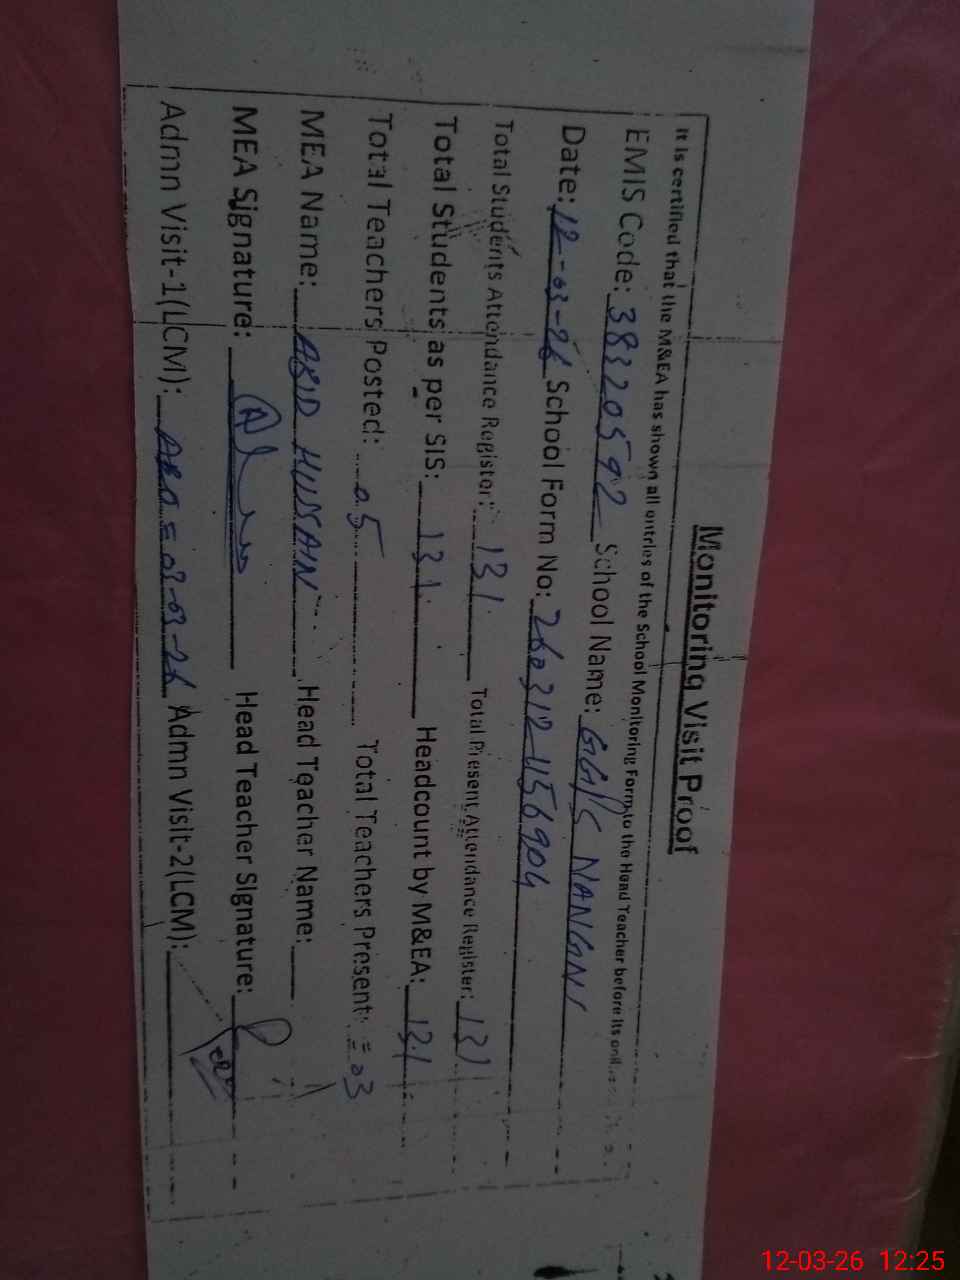 Monitoring Visit Proof
It is certified that the M&EA has shown all entries of the School Monitoring Form to the Head Teacher before its
EMIS Code: 38320592 School Name: GG/S NANGNI
Date: 12-03-26 School Form No: 260312-1156904
Total Students Attendance Register: 131 Total Present Attendance Register: 131
Total Students as per SIS: 131 Headcount by M&EA: 131
Total Teachers Posted: 05 Total Teachers Present: = 03
MEA Name: ABID HUSSAIN Head Teacher Name:
MEA Signature: Head Teacher Signature:
Admn Visit-1(LCM): = 03-03-26 Admn Visit-2(LCM):
12-03-26 12:25